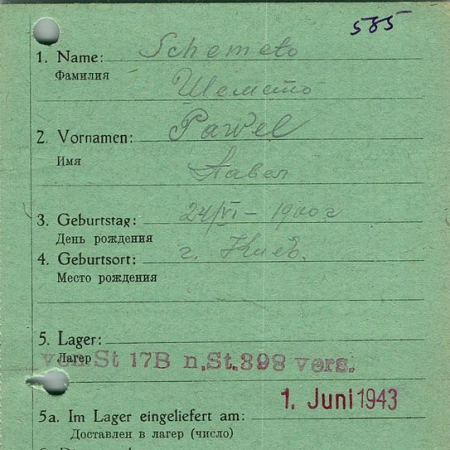 585
1. Name: Schemeto
Фамилия
Шемето
2. Vornamen: Pawel
Имя
Павел
3. Geburtstag: 24/VI – 1900 г
День рождения
4. Geburtsort: г. Киев.
Место рождения
5. Lager:
Лагер
von St 17B n.St.398 vers.
1. Juni 1943
5a. Im Lager eingeliefert am:
Доставлен в лагер (число)